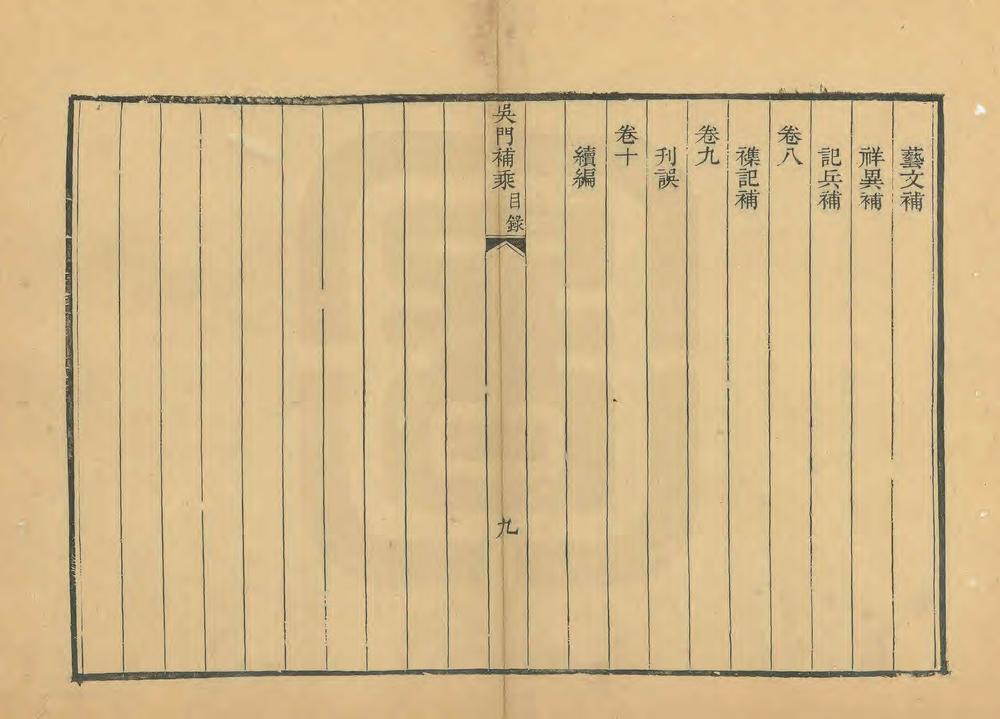 藝文補
祥異補
記兵補
卷八
襍記補
卷九
刊誤
卷十
續編
吳門補乘
目錄
九